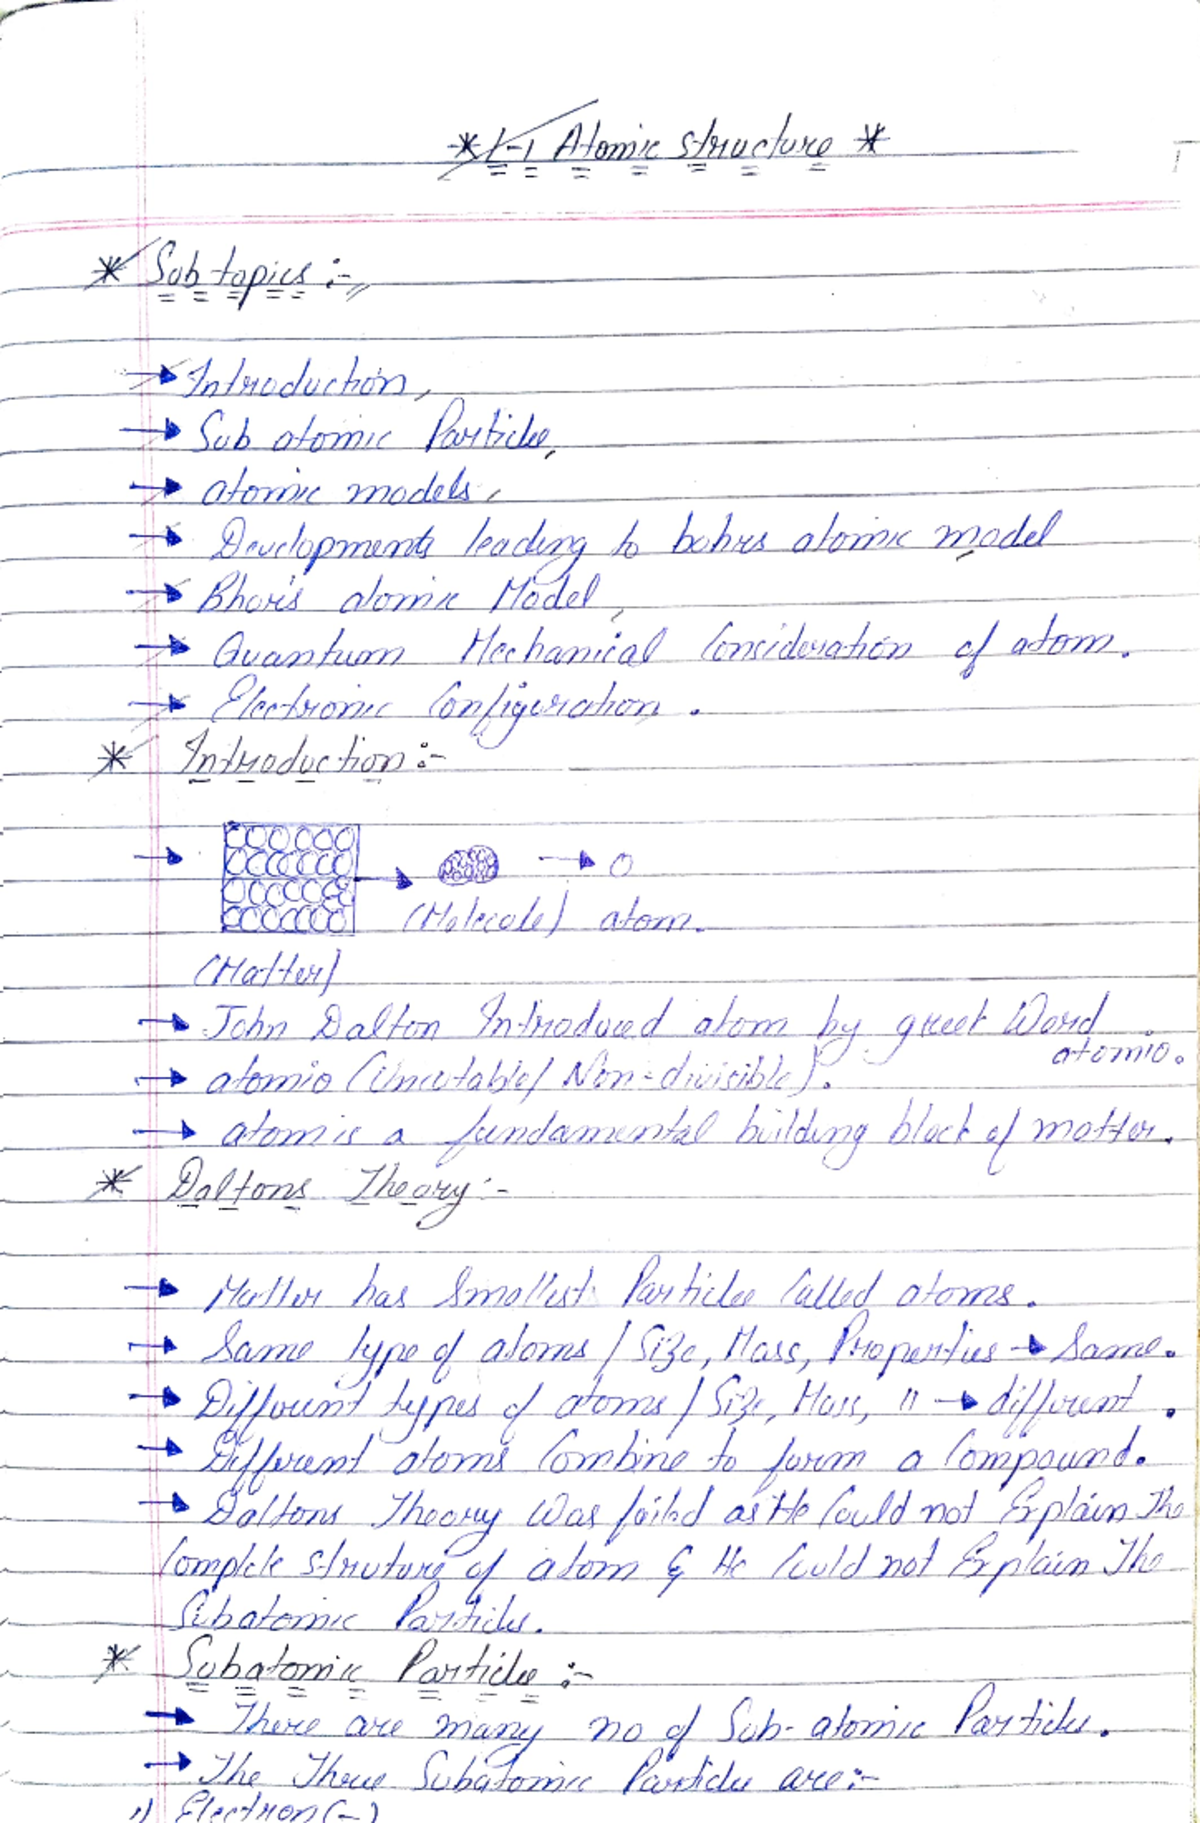 * L-1 Atomic structure *
* Sub topics :-
→ Introduction,
→ Sub atomic Particle,
→ atomic models,
→ Developments leading to bohrs atomic model
→ Bhor's atomic Model,
→ Quantum Mechanical Consideration of atom.
→ Electronic Configuration.
* Introduction :-
→ → → O
(Molecule) atom.
(Matter)
→ John Dalton Introduced atom by greet Word
atomio.
→ atomio (Uncutable/ Non-divisible).
→ atom is a fundamental building block of matter.
* Daltons Theory :-
→ Matter has Smallest Particle Called atoms.
→ Same type of atoms / Size, Mass, Properties → Same.
→ Different types of atoms / Size, Mass, " → different.
→ Different atoms Combine to form a Compound.
→ Daltons Theory Was failed as He Could not Explain The
Complete struture of atom & He Could not Explain The
Subatomic Particles.
* Subatomic Particle :-
→ There are many no of Sub-atomic Particles.
→ The Three Subatomic Particle are:-
1) Electron (-)